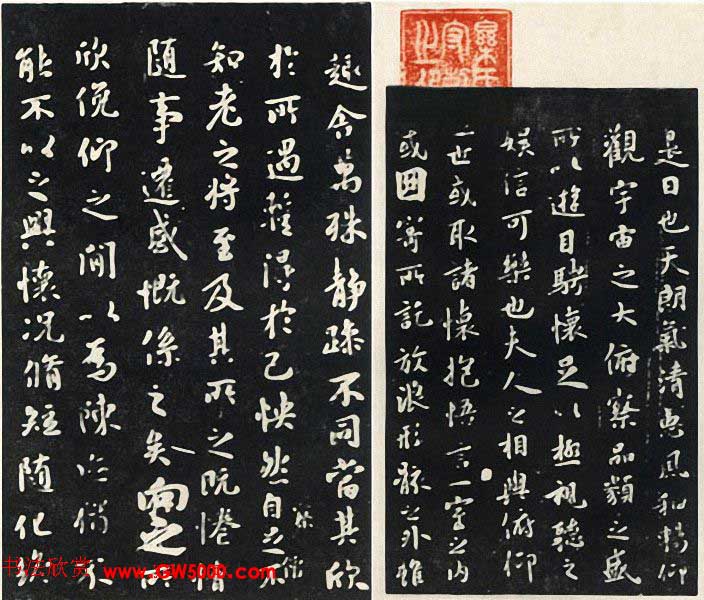 是日也天朗氣清惠風和暢仰
觀宇宙之大俯察品類之盛
所以遊目騁懷足以極視聽之
娛信可樂也夫人之相與俯仰
一世或取諸懷抱悟言一室之内
或因寄所託放浪形骸之外雖
趣舍萬殊靜躁不同當其欣
於所遇暫得於己怏然自足不
知老之將至及其所之既惓情
隨事遷感慨係之矣向之所
欣俛仰之閒以為陳迹猶不
能不以之興懷況脩短隨化終
书法欣赏 www.GW5000.com